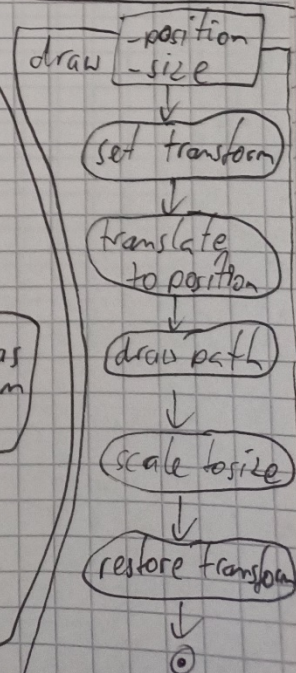 -position
draw -size
set transform
translate
to position
draw path
scale to size
restore transform